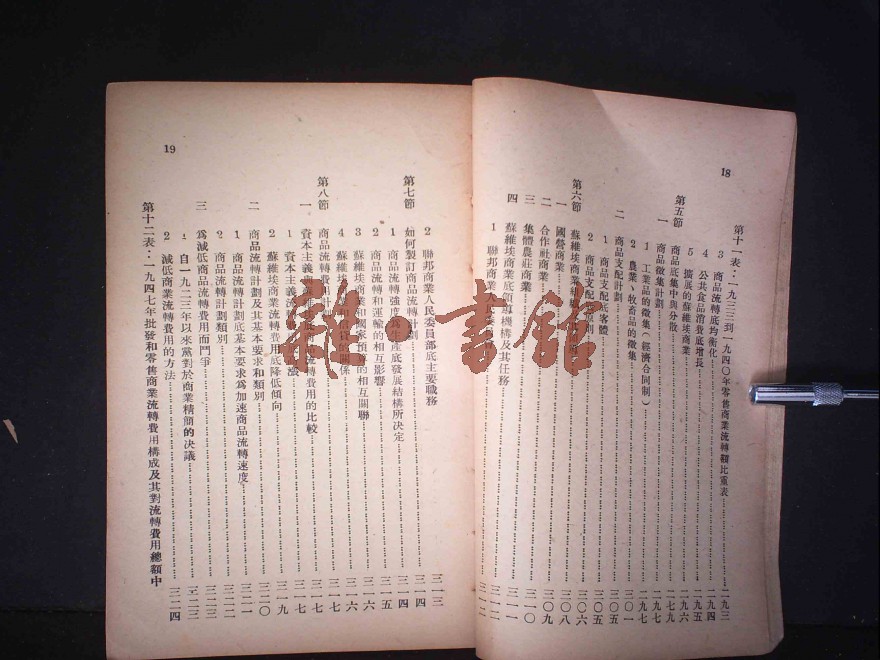 18
第十一表:一九三三到一九四〇年零售商業流轉額比重表
3 商品流轉底均衡化 二九三
4 公共食品消費底增長 二九四
5 擴展的蘇維埃商業 二九五
第五節 商品底集中與分散 二九六
一 商品徵集計劃 二九七
1 工業品的徵集(經濟合同制) 二九七
2 農業、牧畜品的徵集 三〇一
二 商品支配計劃 三〇五
1 商品支配底客體 三〇五
2 商品支配
第六節 蘇維埃商業 三〇六
一 國營商業 三〇八
二 合作社商業 三〇九
三 集體農莊商業 三一〇
四 蘇維埃商業底領導機構及其任務 三一一
1 聯邦商業人民
19
2 聯邦商業人民委員部底主要職務 三一三
第七節 如何製訂商品流轉計劃 三一四
1 商品流轉強度爲生產底發展結構所決定 三一四
2 商品流轉和運輸的相互影響 三一五
3 蘇維埃商業和國家預算的相互關聯 三一六
4 蘇維埃 信貸的關係 三一六
第八節 商品流轉費用計劃 三一七
一 資本主義 商品流轉費用的比較 三一七
1 資本主義流轉 三一七
2 蘇維埃商業流轉費用底降低傾向 三一九
二 商品流轉計劃及其基本要求和類別 三二〇
1 商品流轉計劃底基本要求爲加速商品流轉速度 三二一
2 商品流轉計劃類別 三二二
三 爲減低商品流轉費用而鬥爭 三二三
1 自一九二三年以來黨對於商業精簡的決議 三二三
2 減低商業流轉費用的方法 三二四
第十二表:一九四七年批發和零售商業流轉費用構成及其對流轉費用總額中
書館